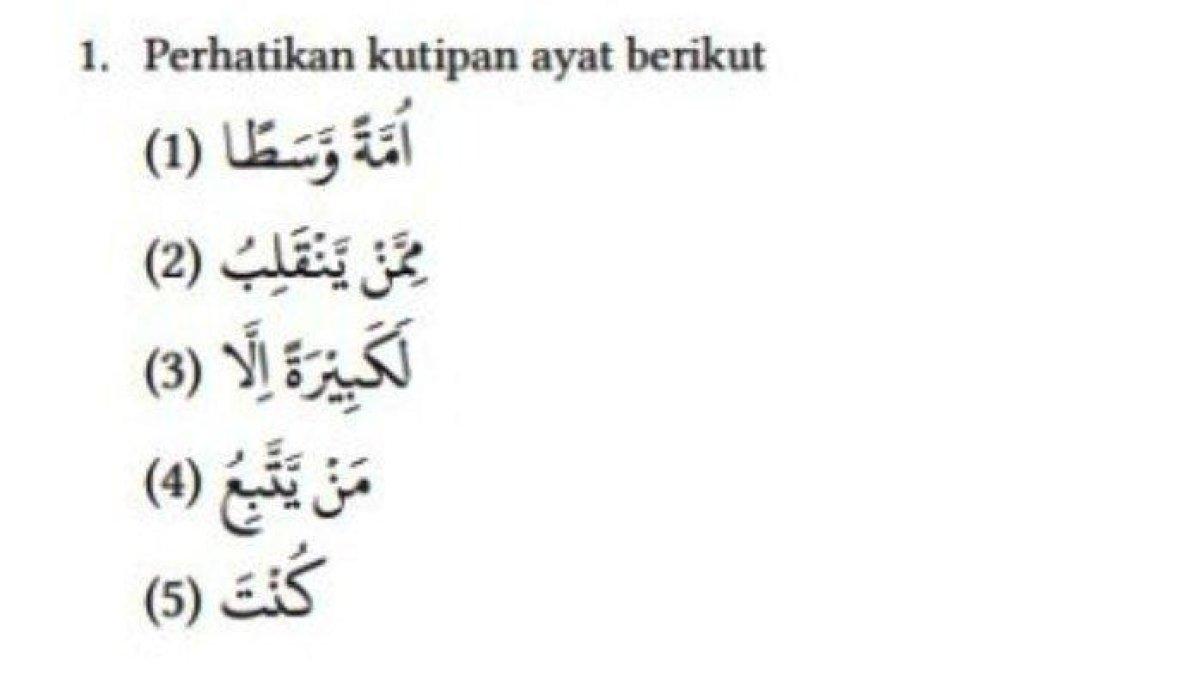 1. Perhatikan kutipan ayat berikut
(1) اُمَّةً وَّسَطًا
(2) مِمَّنْ يَّنْقَلِبُ
(3) لَكَبِيْرَةً اِلَّا
(4) مَنْ يَّتَّبِعُ
(5) كُنْتَ